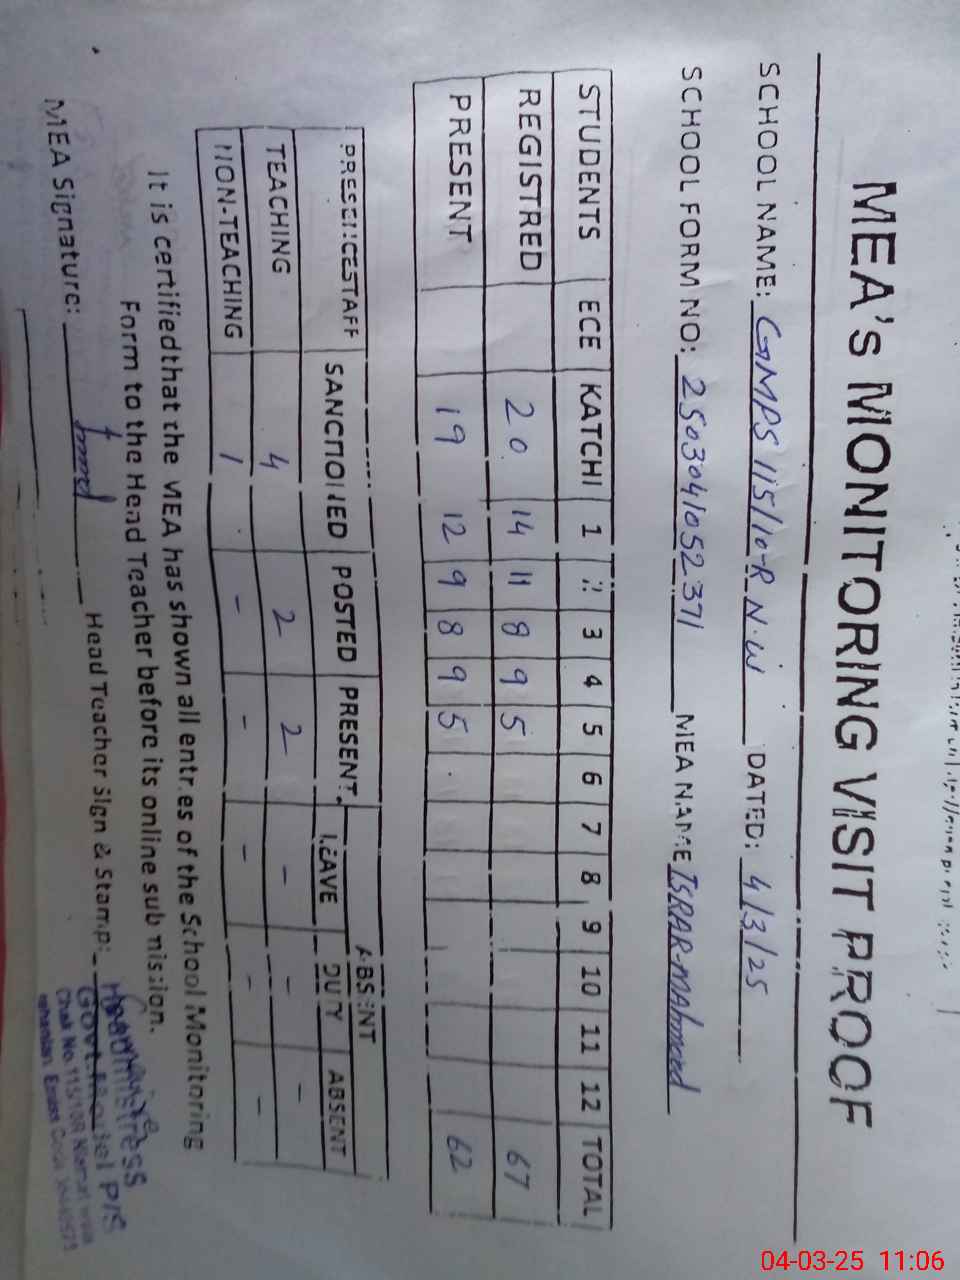 MEA's MONITORING VISIT PROOF
SCHOOL NAME: GMPS 115/10-R N.W DATED: 4/3/25
SCHOOL FORM NO: 2503041052371 MEA NAME ISRAR-MAhmood
STUDENTS ECE KATCHI 1 2 3 4 5 6 7 8 9 10 11 12 TOTAL
REGISTRED 20 14 11 8 9 5 67
PRESENT 19 12 9 8 9 5 62
PRESENCESTAFF SANCTIONED POSTED PRESENT ABSENT
LEAVE DUTY ABSENT
TEACHING 4 2 2 - - -
NON-TEACHING 1 - - - - -
It is certifiedthat the MEA has shown all entries of the School Monitoring
Form to the Head Teacher before its online submission.
MEA Signature: Head Teacher Sign & Stamp:
Headmistress
Govt. Model P/S
Chak No.115/10R
04-03-25 11:06